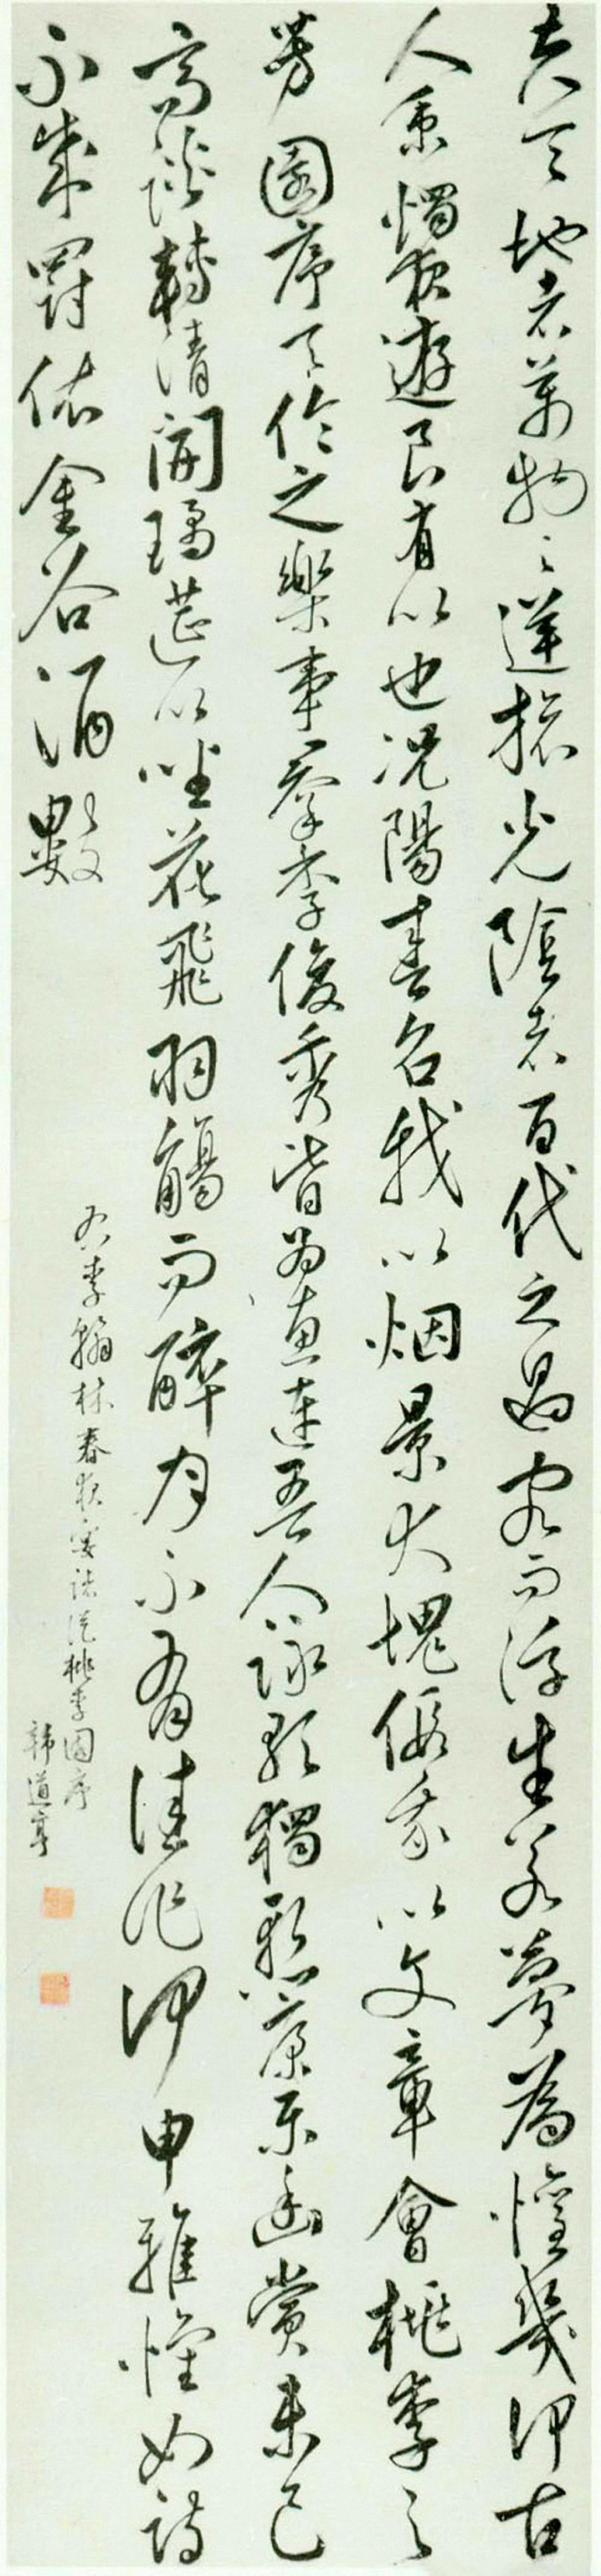 夫天地者萬物之逆旅光陰者百代之過客而浮生若夢為懽幾何古
人秉燭夜遊良有以也況陽春召我以烟景大塊假我以文章會桃李之
芳園序天倫之樂事羣季俊秀皆為惠連吾人詠歌獨慙康樂幽賞未已
高談轉清開瓊筵以坐花飛羽觴而醉月不有佳作何申雅懷如詩
不成罰依金谷酒數
右李翰林春夜宴諸從桃李園序
韓道亨